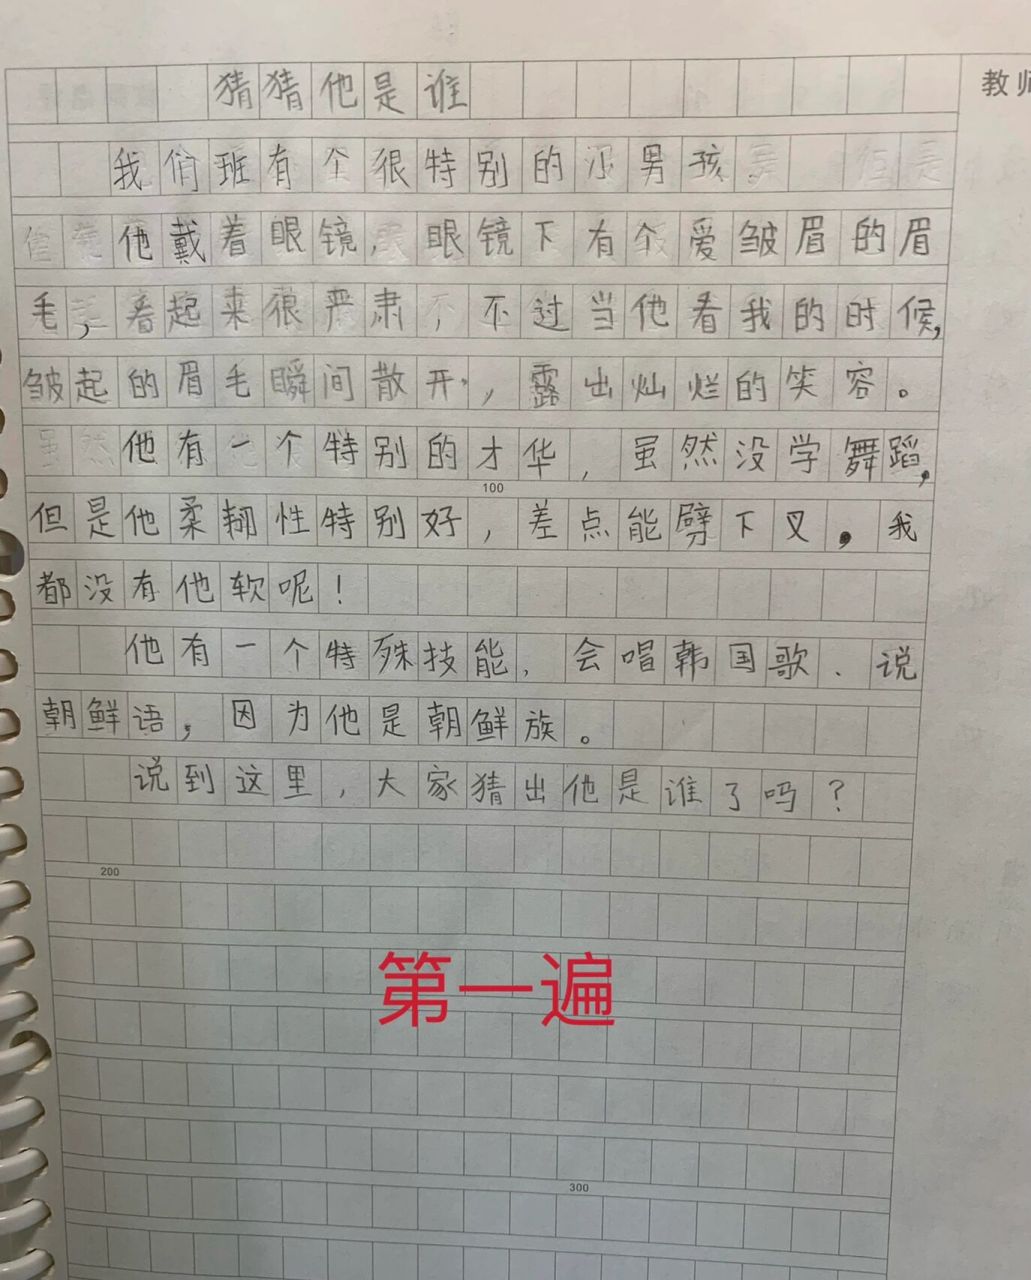 猜猜他是谁
教师
我们班有个很特别的小男孩
他戴着眼镜，眼镜下有个爱皱眉的眉
毛，看起来很严肃，不过当他看我的时候，
皱起的眉毛瞬间散开，露出灿烂的笑容。
他有一个特别的才华，虽然没学舞蹈，
100
但是他柔韧性特别好，差点能劈下叉，我
都没有他软呢！
他有一个特殊技能，会唱韩国歌、说
朝鲜语，因为他是朝鲜族。
说到这里，大家猜出他是谁了吗？
200
第一遍
300